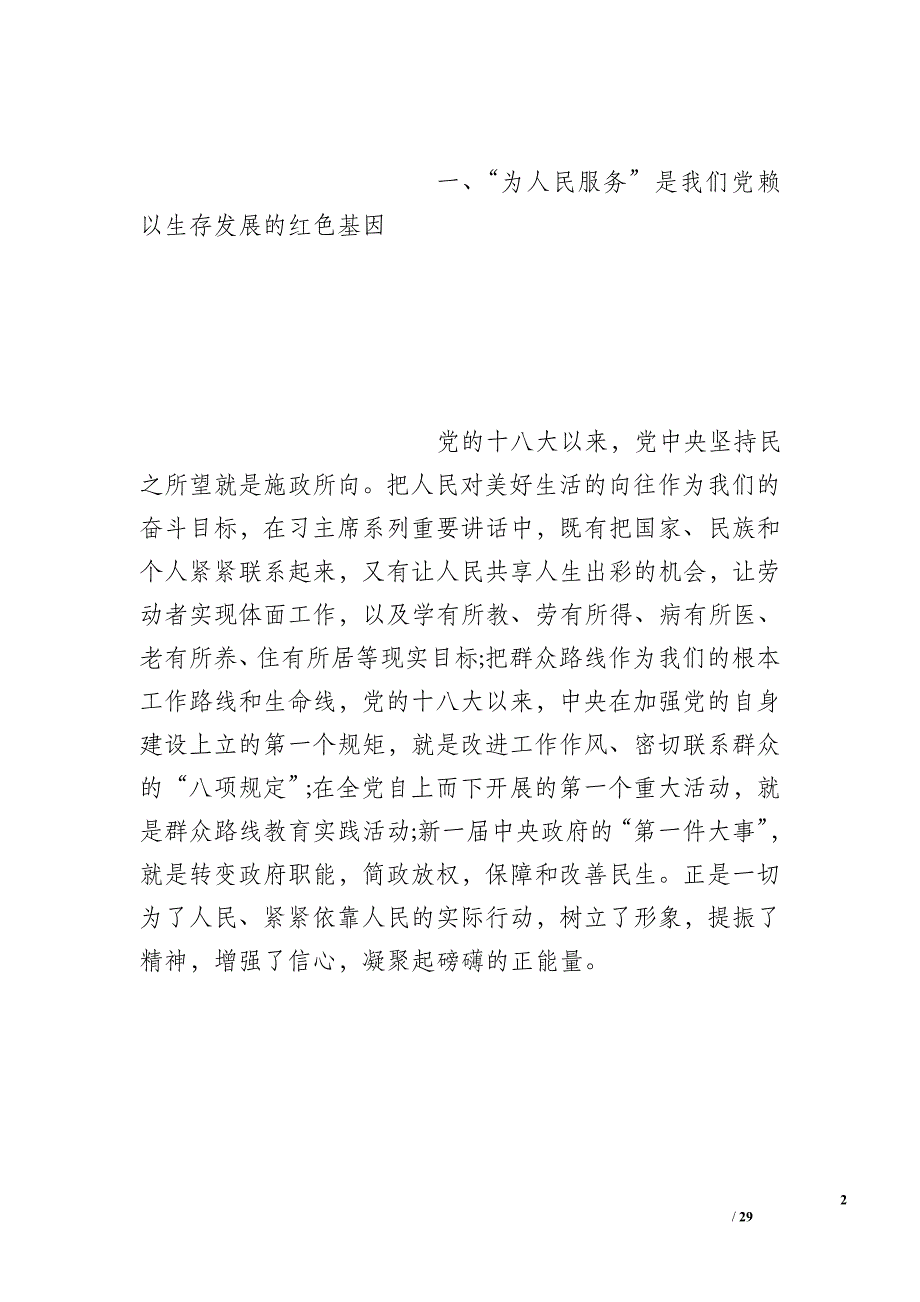 一、“为人民服务”是我们党赖
以生存发展的红色基因
党的十八大以来，党中央坚持民
之所望就是施政所向。把人民对美好生活的向往作为我们的
奋斗目标，在习主席系列重要讲话中，既有把国家、民族和
个人紧紧联系起来，又有让人民共享人生出彩的机会，让劳
动者实现体面工作，以及学有所教、劳有所得、病有所医、
老有所养、住有所居等现实目标;把群众路线作为我们的根本
工作路线和生命线，党的十八大以来，中央在加强党的自身
建设上立的第一个规矩，就是改进工作作风、密切联系群众
的“八项规定”;在全党自上而下开展的第一个重大活动，就
是群众路线教育实践活动;新一届中央政府的“第一件大事”，
就是转变政府职能，简政放权，保障和改善民生。正是一切
为了人民、紧紧依靠人民的实际行动，树立了形象，提振了
精神，增强了信心，凝聚起磅礴的正能量。
2
/ 29